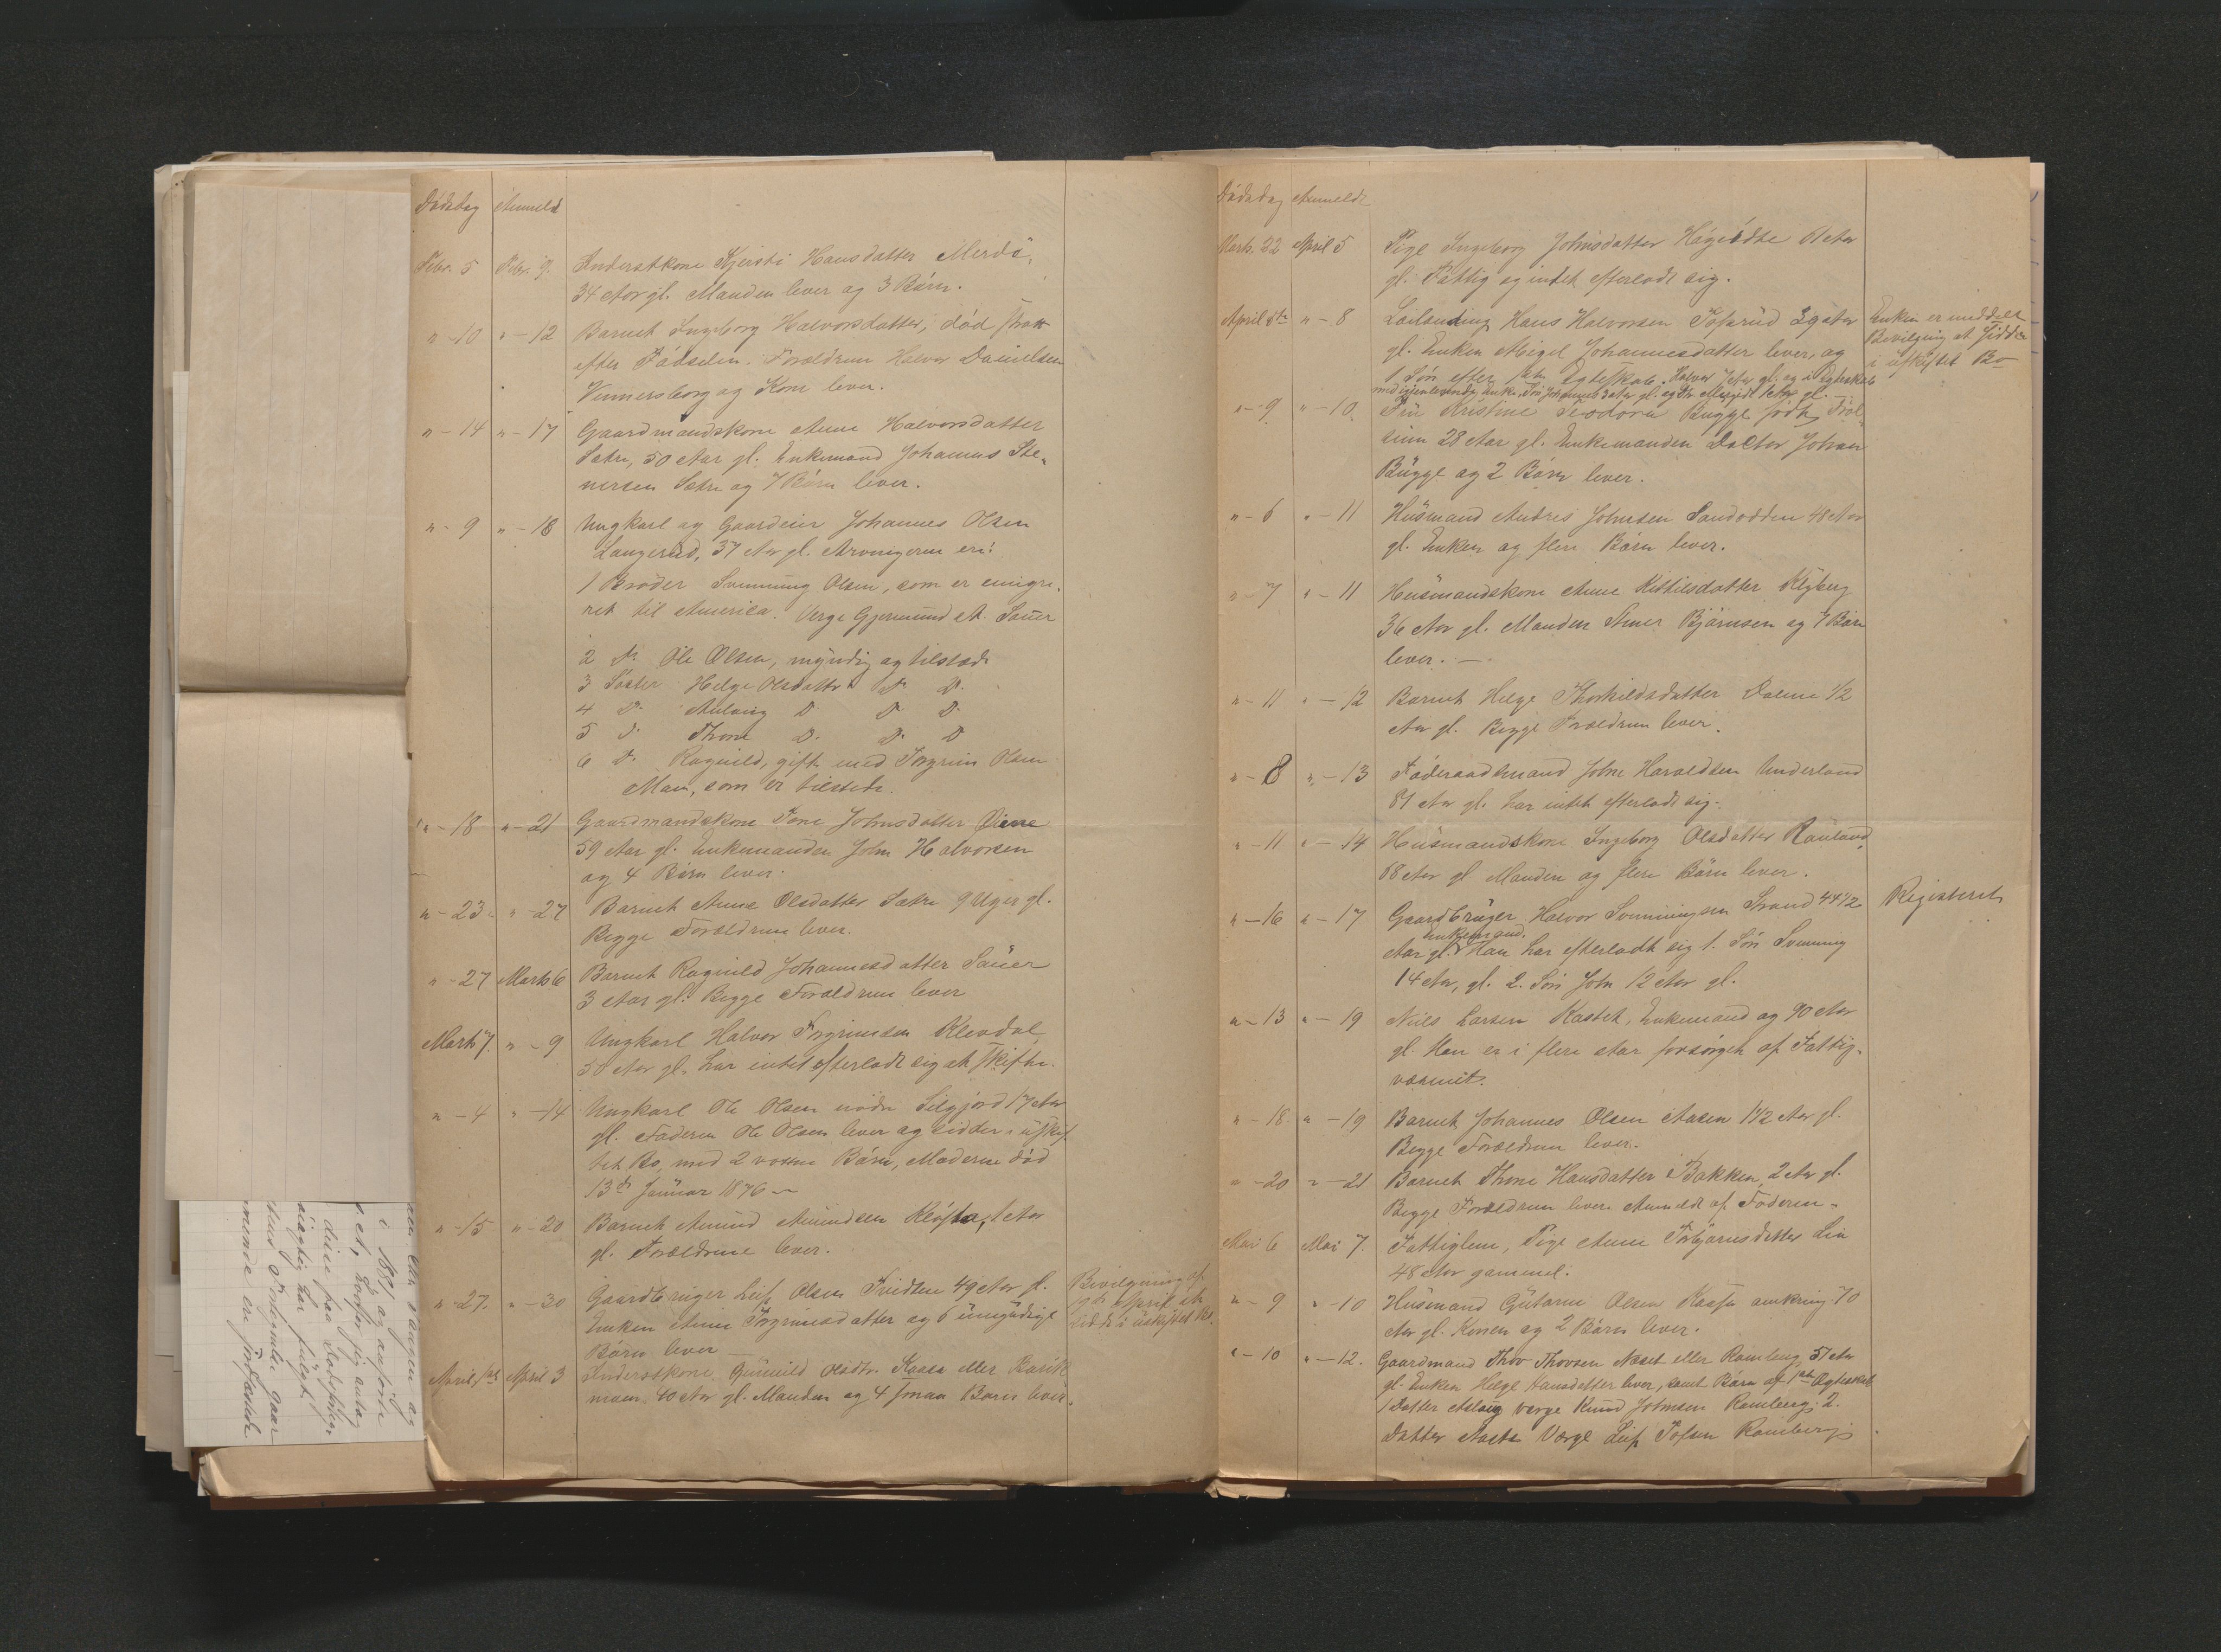 Dödsdag Anmeldt
Febr. 5 Febr. 9. Inderstkone Kjersti Hansdatter Merdö,
34 Aar gl. Manden lever og 3 Börn.
" - 10 " - 12 Barnet Ingeborg Halvorsdatter, död strax
efter Födselen. Forældrene Halvor Danielsen
Vinnersborg og Kone lever.
" - 14 " - 17 Gaardmandskone Anne Halvorsdatter
Sætre, 50 Aar gl. Enkemand Johannes Ste-
nersen Sætre og 7 Börn lever.
" - 9 " - 18 Ungkarl og Gaardeier Johannes Olsen
Langerud, 37 Aar gl. Arvingerne ere:
1 Broder Svenning Olsen, som er emigre-
ret til America. Verge Gjermund A. Sauer
2 do Ole Olsen, myndig og tilstede
3 Söster Helge Olsdatter do do
4 do Anlaug do do do
5 do Thone do do do
6 do Ragnild, gift med Torgrim Olsen
Moen, som er tilstede.
" - 18 " - 21 Gaardmandskone Tone Johnsdatter
59 Aar gl. Enkemanden John Halvorsen
og 4 Börn lever.
" - 23 " - 27 Barnet Anne Olsdatter Sætre 9 Uger gl.
Begge Forældrene lever.
" - 27 Marts 6 Barnet Ragnild Johannesdatter Sauer
3 Aar gl. Begge Forældrene lever
Marts 7. " - 9 Ungkarl Halvor Torgrimsen Klevdal
50 Aar gl. har intet efterladt sig at skifte.
" - 4 " - 14 Ungkarl Ole Olsen nedre Silgjord 17 Aar
gl. Faderen Ole Olsen lever og sidder i uskif-
tet Bo, med 2 voxne Börn, Moderen död
13de Januar 1876
" - 15 " - 20 Barnet Amund Amundsen Klöfta, 1 Aar
gl. Forældrene lever.
" - 27. " - 30 Gaardbruger Leif Olsen Tvedten 49 Aar gl.
Enken Anne Torgrimsdatter og 6 umyndige
Börn lever
Bevilgning af
April at
sidde i uskiftet Bo.
April 1ste April 3 Inderstkone Gunnild Olsdtr. Kaasa eller
moen, 40 Aar gl. Manden og 4 smaa Börn lever.
Dödsdag Anmeldt
Marts 22 April 5 Pige Ingeborg Johnsdatter 61 Aar
gl. Fattig og intet efterladt sig.
April 5te " - 8 Lailænding Hans Halvorsen Tofsrud 39 Aar
gl. Enken Margit Johannesdatter lever, og
1 Sön efter 1ste Egteskab, Halvor 7 Aar gl. og i Egteskab
med igjenlevende Enke Sön Johannes 3 Aar gl. og Dtr. Margit 1 Aar gl.
Enken er meddelt
Bevilgning at sidde
i uskiftet Bo
" - 9 " - 10. Frue Kristine Teodora Bugge födt
28 Aar gl. Enkemanden Doctor Johan
Bugge og 2 Börn lever.
" - 6 " - 11 Husmand Andres Johnsen Sandodden 48 Aar
gl. Enken og flere Börn lever.
" - 7 " - 11 Husmandskone Anne Kittilsdatter Klyberg
36 Aar gl. Manden Bjørnsen og 7 Börn
lever. —
" - 11 " - 12 Barnet Helge Thorkildsdatter Dalene 1/2
Aar gl. Begge Forældrene lever.
" - 8 " - 13 Föderaadsmand John Haraldsen Underland
81 Aar gl. har intet efterladt sig.
" - 11 " - 14 Husmandskone Ingeborg Olsdatter Rauland,
68 Aar gl Manden og flere Börn lever.
" - 16 " - 17 Gaardbruger Halvor Svenningsen Strand 44 1/2
Aar gl. Enkemand. Han har efterladt sig 1. Sön Svenning
14 Aar, gl. 2. Sön John 12 Aar gl.
Registeret
" - 13 " - 19 Niels Larsen Kastet, Enkemand og 90 Aar
gl. Han er i flere Aar forsörget af Fattig-
væsenet.
" - 18. " - 19 Barnet Johannes Olsen Aasen 1 1/2 Aar gl.
Begge Forældrene lever.
" - 20 " - 21 Barnet Thone Hansdatter Bakken, 2 Aar gl.
Begge Forældrene lever. Anmeldt af Faderen.
Mai 6 Mai 7. Fattiglem, Pige Anne Torbjörnsdatter Lia
48 Aar gammel.
" - 9 " - 10 Husmand Gutorm Olsen Kaasa omkring 70
Aar gl. Konen og 2 Börn lever.
" - 10 " - 12. Gaardmand Thov Thovsen Næset eller Ramberg 51 Aar
gl. Enken Helge Hansdatter lever, samt Börn af 1ste Egteskab
1 Datter Aslaug verge Knud Johnsen Ramberg. 2.
Datter Aaste Verge Leif Tofsen Ramberg